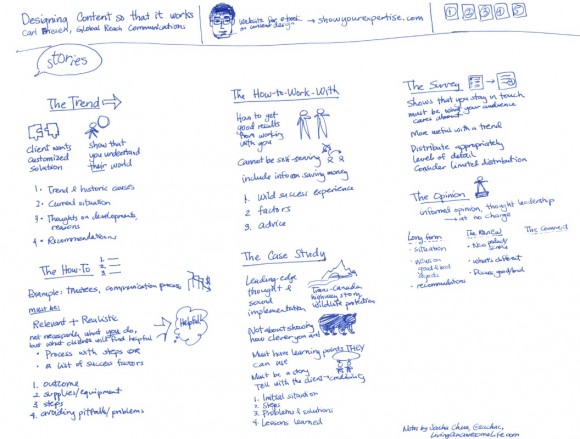 Designing Content so that it works
Carl Friesen, Global Reach Communications
Website for ebook
on content design → showyourexpertise.com
1 2 3 4 5
Stories
The Trend
Client wants
customized
solution
Show that
you understand
their world
1. Trend & historic causes
2. Current situation
3. Thoughts on developments,
reasons
4. Recommendations
The How-To
1.
2.
3.
Example: trustees, communication process
must be:
Relevant + Realistic
not necessarily what you do,
but what clients will find helpful
Helpful!
• Process with steps OR
• a list of success factors
1. outcome
2. supplies/equipment
3. steps
4. avoiding pitfalls/problems
The How-to-Work-With
How to get
good results
from working
with you
Cannot be self-serving
include info on saving money
1. Wild success experience
2. factors
3. advice
The Case Study
Leading-edge
thought &
sound
implementation
Trans-Canadian
highway story,
wildlife protection
Not about showing
how clever you are
Must have learning points THEY
can use
Must be a story
Tell with the client → credibility
1. Initial situation
2. Steps
3. Problems & solutions
4. Lessons learned
The Survey
Shows that you stay in touch
must be what your audience
cares about
More useful with a trend
Distribute appropriately
levels of detail
Consider limited distribution
The Opinion
informed opinion, thought leadership
→ at no charge
Long form
• situation
• focus on
good & bad
aspects
• recommendations
The Review
• New policy/
• What's different
• Pluses, good/bad
The Comment
Notes by Sacha Chua, @sachac,
LivingAnAwesomeLife.com